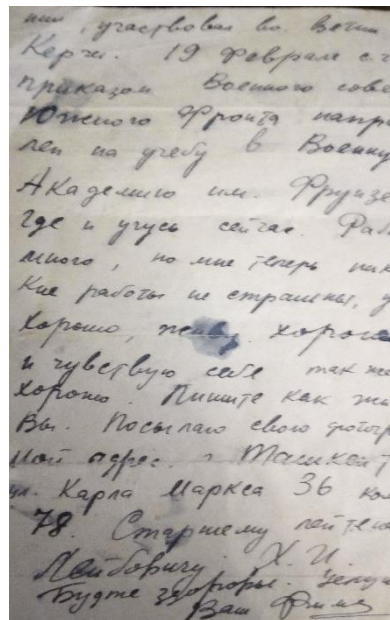 нии, участвовал во взтии
Керчи. 19 Февраля с.г
приказом Военного сове
Южного Фронта напра
лен на учебу в Военну
Академию им. Фрунзе
Где и учусь сейчас. Раб
много, но мне теперь ник
кие работы не страшны,
Хорошо, живу хорошо
и чувствую себя так же
хорошо. Пишите как жи
Вы. Посылаю свою фотогр
мой адрес. г Ташкент
ул. Карла Маркса 36 ком
78. Старшему лейтена
Лейбовичу Х. И.
Будте здоровы. целую
Ваш Фима